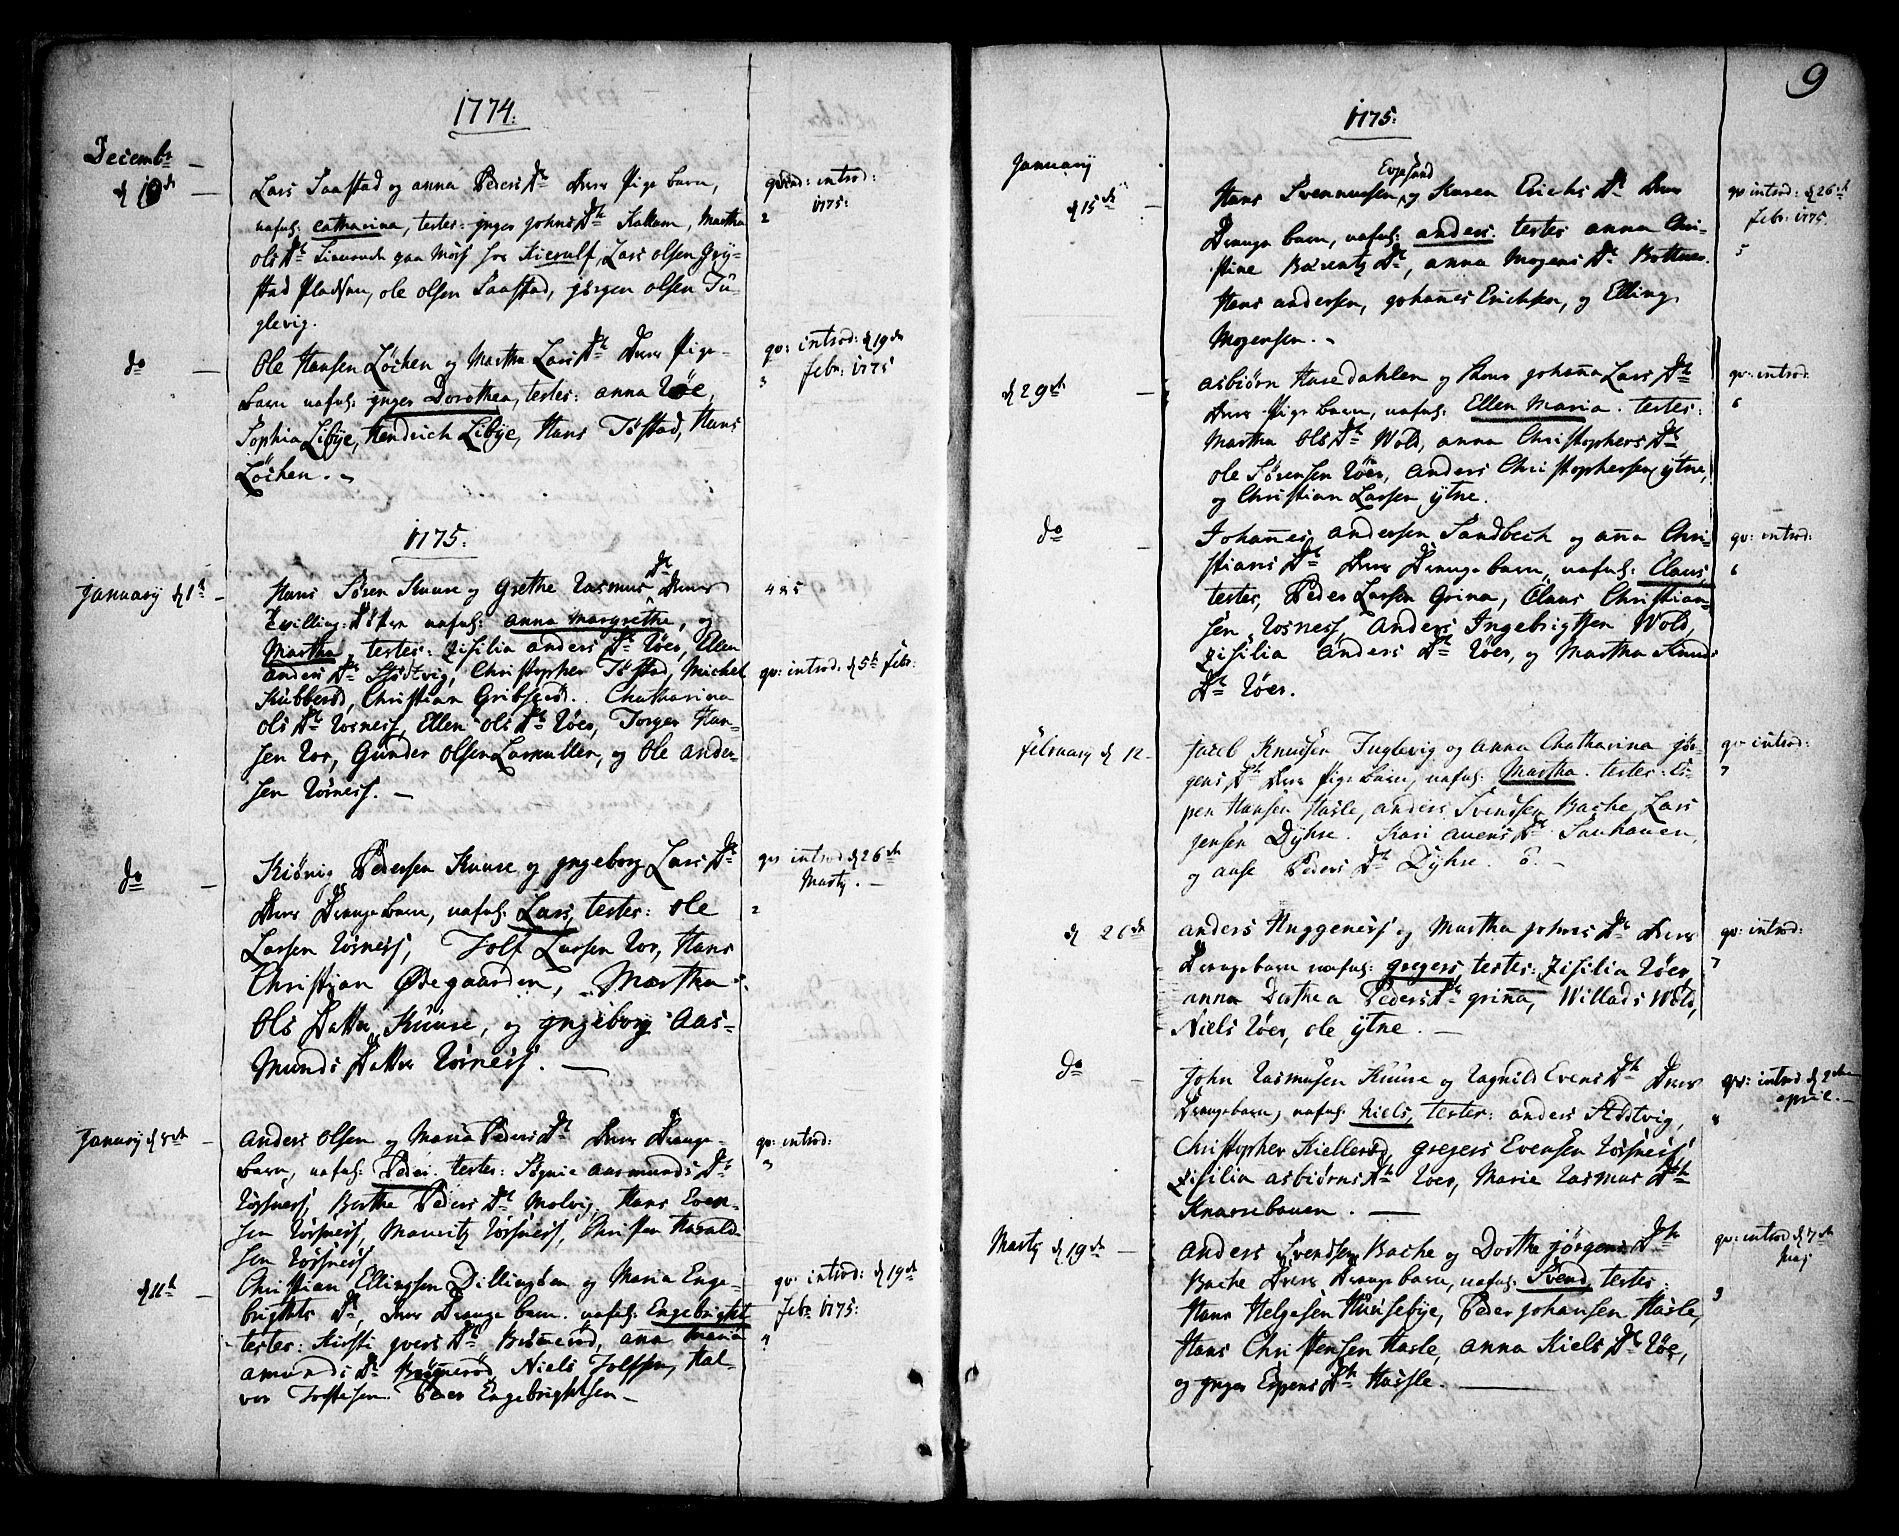 1774.
Decembr
d 18de
Lars Saastad og anna Peders Dtr Deres Pige barn,
nafnl: catharina, testes: jnger johns Dtr Kallum, Martha
ols Dtr Tienende paa Moss hos Kierulf, Lars olsen Gry-
stad Pladsen, ole olsen Saastad, jørgen olsen Fu-
glevig.
qvind: introd:
1775:
2
do
Ole Hansen Løchen og Martha Lars Dtr Deres Pige-
Barn nafnl: jnger Dorothea, testes: anna Røe,
Sophia Libÿe, Hendrich Libÿe, Hans Tøstad, Hans
Løchen.
qv: introd: d 19de
febr: 1775
3
1775.
Januarij d 1st
Hans Sören Kuuse og Grethe Rasmus Dtr Deres
Tvilling: Døttre nafnl: anna Margrethe, og
Martha, testes: Zisilia anders Dtr Röer, Ellen
anders Dtr Stödtvig, Christopher Töstad, Michel
Kubberød, Christian Gribsrød. Chatharina
ols Dtr Rosness, Ellen ols Dtr Röer, Torger Han-
sen Ror, Gunder olsen Larkullen, og Ole ander-
sen Rosness.
4 & 5
qv: introd: d 5te febr:
do
Kiönig Pedersen Kuuse og jngeborg Lars Dtr
Deres Drenge barn, nafnl: Lars, testes: ole
Larsen Rosness, Tolf Larsen Ror, Hans
Christian Ødegaarden, Martha
Ols Datter Kuuse, og jngeborg Aas-
Munds Datter Rosness.
qv: introd d 26de
Martij.
2
Januarij d 8de
Anders olsen og Maria Peders Dtr Deres Drenge-
barn, nafnl: Peder. testes: Signie aasmunds Dtr
Rosness, Berthe Peders Dtr Molvig, Hans Even-
sen Rosness, Mauritz Rosness, Christen Harald-
sen Rosness
qv: introd:
3
d 11te
Christian Ellingsen Dillingöen og Maria Enge-
brigthts Dtr, Deres Drenge barn. nafnl: Engebright
testes: Kirsti jvers Dtr Brönnerød, anna Maria
amunds Dtr Brönnerød, Niels Tolfsen, Hal-
vor Tostesen. Peder Engebrightsen
qv: introd: d 19de
Febr: 1775.
4
9
1775.
Januarij
d 15de
Evjesund
Hans Svennusen, og Karen Erichs Dtr Deres
Drenge barn, nafnl: anders. testes anna Chri-
stine Barentz Dtr, anna Mogens Dtr Bottner.
Hans andersen, johannes Erichsen, og Elling
Mogensen.
qv introd: d 26de
febr: 1775.
5
d 29de
asbiörn Haredahlen og Kone johanna Lars Dtr
Deres Pige barn, nafnl: Ellen Maria. testes:
Martha ols Dtr Wold, anna Christophers Dtr
ole Sörensen Röer, Anders Christophersen ÿtne,
og Christian Larsen ÿtne.
qv: introd:
6
do
Johannes andersen Sandbech og anna Chri-
stians Dtr Deres Drenge barn, nafnl: Claus,
testes, Peder Larsen Grina, Claus Christian-
sen Rosness, Anders Ingebrigtsen Wold,
Zisilia Anders Dtr Röer, og Martha Knuds
Dtr Röer.
qv: introd:
6
februarij d 12
Jacob Knudsen Fuglevig og anna Chatharina jör-
gens Dtr Deres Pige barn, nafnl: Martha. testes: Es-
pen Hansen Hasle, anders Svendsen Bache, Lars
jensen Dÿhre. Kari auens Dtr Sauhauen,
og aase Peders Dtr Dÿhre.
qv introd:
7
d 26de
anders Huggeness og Martha johns Dtr Deres
Drengebarn nafnl: gregers, testes: Zisilia Röer,
anna Dorthea Peders Dtr grina, Willads Wold,
Niels Röer, ole ÿtne.
qv: introd:
7
do
John Rasmusen Kuuse og Ragnild Evens Dtr Deres
Drengebarn, nafnl: Niels, testes: anders Stödtvig,
Christopher Kiellerød, gregers Evensen Rosness,
Zisilia asbiörns Dtr Roer, Marie Rasmus Dtr
Knarrebauen.
qv: introd d 2den
april.
8
Martij d 19de
Anders Svendsen Bache og Dorthe jörgens Dtr
Bache Deres Drenge barn, nafnl: Svend, testes:
Hans Helgesen Huusebÿe, Peder johansen Hasle,
Hans Christensen Hasle, anna Niels Dtr Röe,
og jnger Espens Dtr Hassle.
qv: introd d 7de
Maj
9